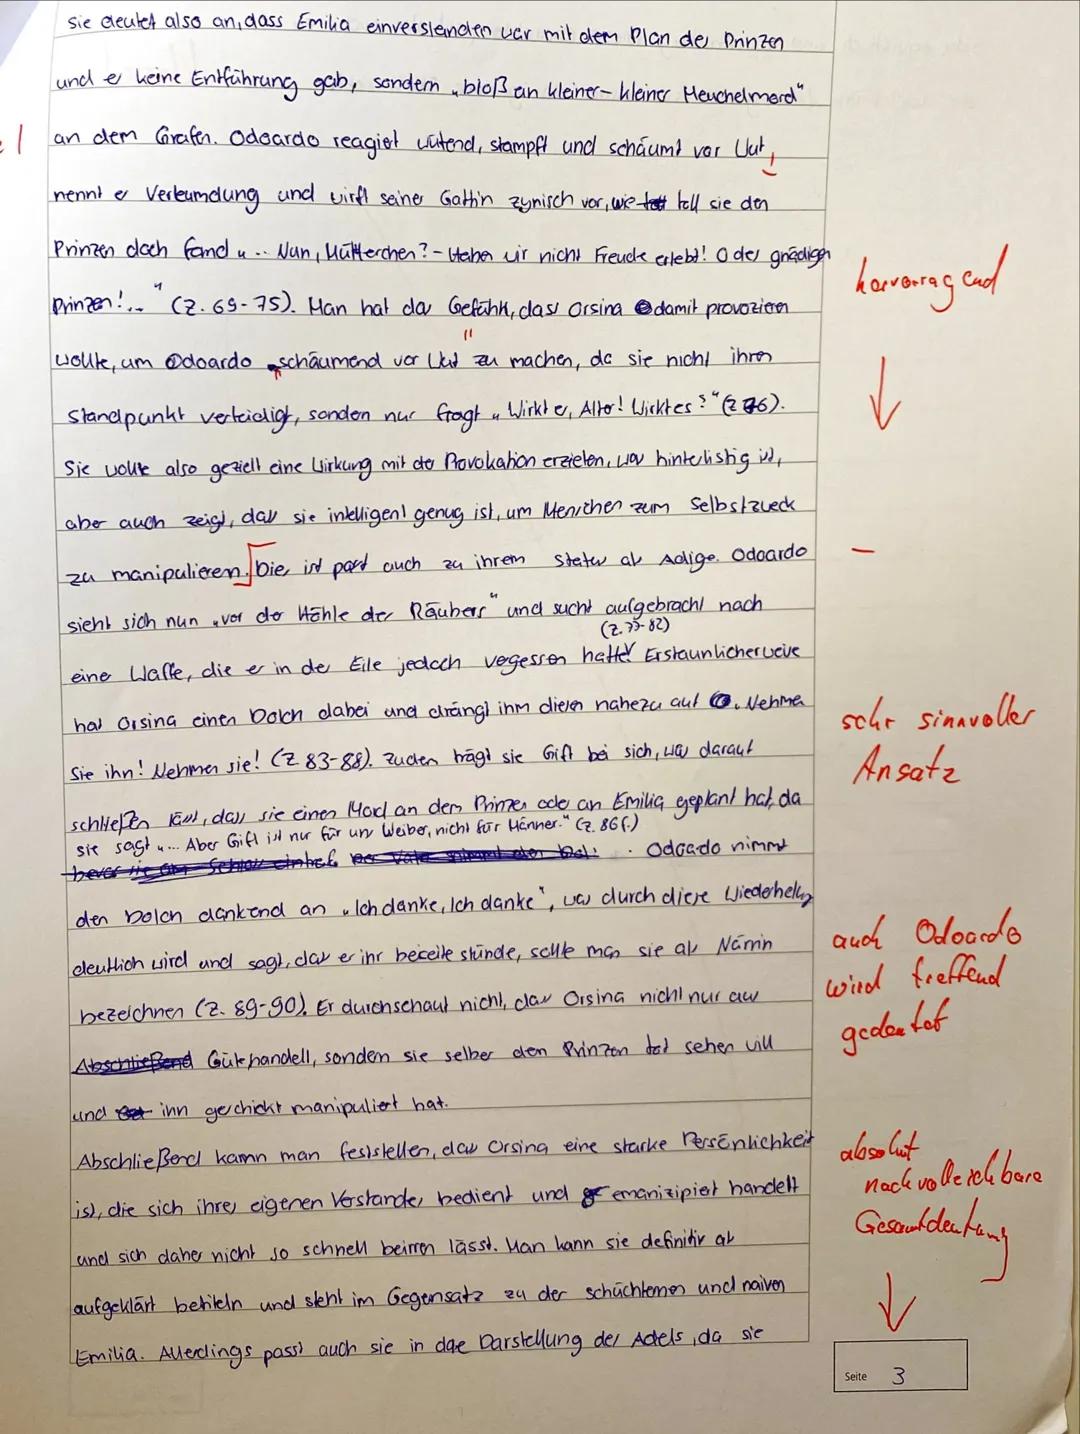 sie deutet also an, dass Emilia einverstanden war mit dem Plan des Prinzen
und es keine Entführung gab, sondern „bloß ein kleiner - kleiner Meuchelmord"
an dem Grafen. Odoardo reagiert wütend, stampft und schäumt vor Wut,
nennt es Verleumdung und wirft seiner Gattin zynisch vor, wie toll sie den
Prinzen doch fand „... Nun, Mütterchen? - Haben wir nicht Freude erlebt! O des gnädigen
Prinzen!..." (Z. 69-75). Man hat das Gefühl, dass Orsina damit provozieren
hervorragend
wollte, um Odoardo „schäumend vor Wut" zu machen, da sie nicht ihren
Standpunkt verteidigt, sondern nur fragt „Wirkt es, Alter! Wirkt es?" (Z 76).
Sie wollte also gezielt eine Wirkung mit der Provokation erzielen, was hinterlistig ist,
aber auch zeigt, dass sie intelligent genug ist, um Menschen zum Selbstzweck
zu manipulieren. Dies ist passt auch zu ihrem Status als Adlige. Odoardo
sieht sich nun „vor der Höhle des Räubers" und sucht aufgebracht nach
(Z. 77-82)
eine Waffe, die er in der Eile jedoch vegessen hatte! Erstaunlicherweise
hat Orsina einen Dolch dabei und drängt ihm diesen nahezu auf. Nehmen
sehr sinnvoller
Ansatz
Sie ihn! Nehmen sie! (Z 83-88). Zudem trägt sie Gift bei sich, was darauf
schließen lässt, dass sie einen Mord an dem Prinzen oder an Emilia geplant hat, da
sie sagt „... Aber Gift ist nur für uns Weiber, nicht für Männer." (Z. 86f.)
. Odoardo nimmt
den Dolch dankend an „Ich danke, Ich danke", was durch diese Wiederholung
deutlich wird und sagt, dass er ihr beiseite stünde, sollte man sie als Närrin
auch Odoardo
wird treffend
gedeutet
bezeichnen (Z. 89-90). Er durchschaut nicht, dass Orsina nicht nur aus
Abschließend Güte handelt, sondern sie selber den Prinzen tot sehen will
und ihn geschickt manipuliert hat.
Abschließend kann man feststellen, dass Orsina eine starke Persönlichkeit
absolut
nachvollziehbare
Gesamtdeutung
ist, die sich ihres eigenen Verstandes bedient und emanzipiert handelt
und sich daher nicht so schnell beirren lässt. Man kann sie definitiv als
aufgeklärt betiteln und steht im Gegensatz zu der schüchternen und naiven
Emilia. Allerdings passt auch sie in die Darstellung des Adels, da sie
Seite 3